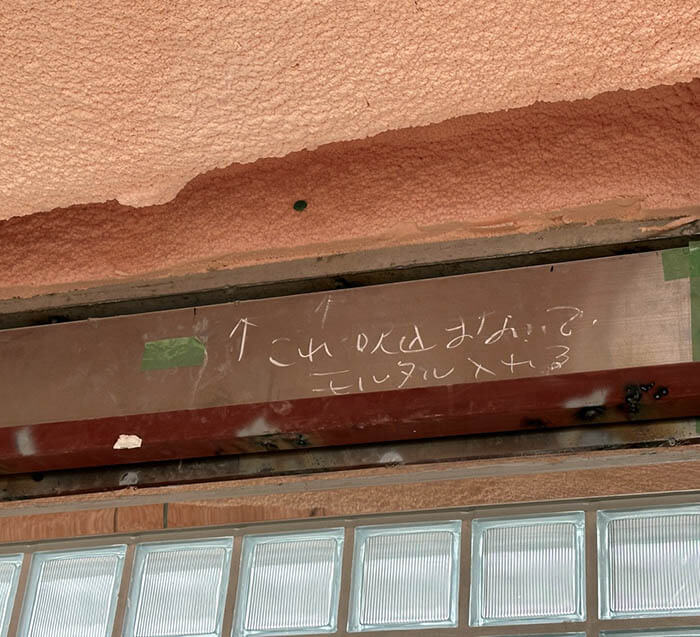 ↑ これ 吹込まないで.
モルタル入れる